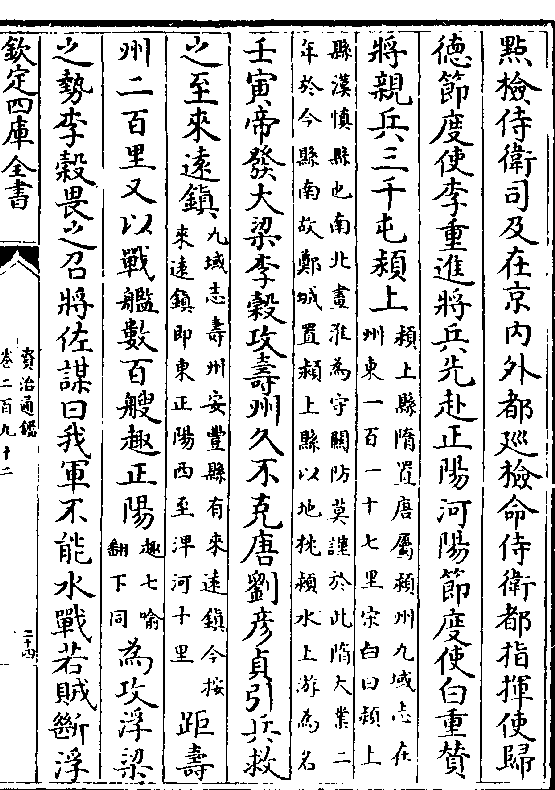 點檢侍衛司及在京内外都巡檢命侍衛都指揮使歸
德節度使李重進將兵先赴正陽河陽節度使白重贊
將親兵三千屯潁上
潁上縣隋置唐屬潁州九域志在
州東一百一十七里宋白曰潁上
縣漢慎縣也南北畫淮為守關防莫謹於此隋大業二
年於今縣南故鄭城置潁上縣以地枕潁水上游為名
壬寅帝發大梁李穀攻壽州久不克唐劉彥貞引兵救
之至來遠鎮
九域志壽州安豐縣有來遠鎮今按
來遠鎮即東正陽西至渒河十里
距壽
州二百里又以戰艦數百艘趣正陽
趣七喻
翻下同
為攻浮梁
之勢李穀畏之召將佐謀曰我軍不能水戰若賊斷浮
欽定四庫全書
資治通鑑
卷二百九十二
二十四